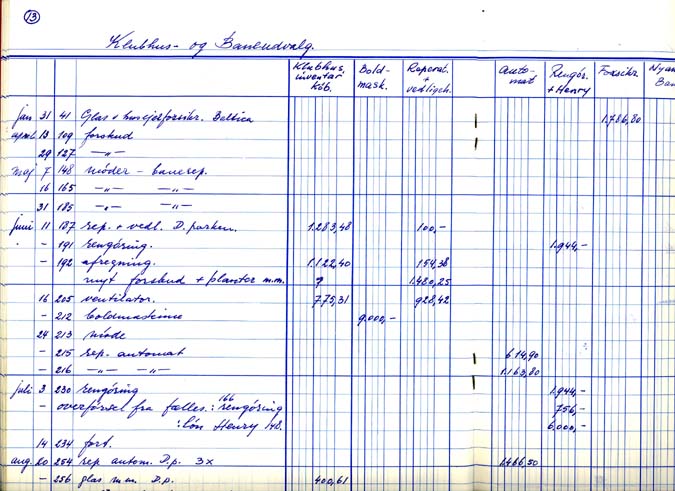 13
Klubhus- og Baneudvalg.
Klubhus, inventar køb. Bold- mask. Reperat. + vedligeh. Auto- mat Rengør. + Henry Forsikr. Nyan Ban
jan 31 41 Glas + husejerforsikr. Baltica 1.786,80
april 13 109 forskud
29 127 —"—
maj 7 148 møder - banerep.
16 165 —"— —"—
31 185 —"— —"—
juni 11 187 rep. + vedl. D. parken. 1.283,48 100,-
- 191 rengöring. 1.944,-
- 192 afregning. 1.122,40 154,38
nyt forskud + planter m.m. ? 1.480,25
16 205 ventilator. 775,31 928,42
- 212 boldmaskine 9.000,-
24 213 møde
- 215 rep. automat 614,90
- 216 —"— —"— 1.163,80
juli 3 230 rengöring 1.944,-
- overførsel fra fælles: 166 rengöring 756,-
: løn Henry 6.000,-
14 234 fort.
aug. 20 254 rep autom. D.p. 3x 1.466,50
- 256 glas m.m. D.p. 400,61